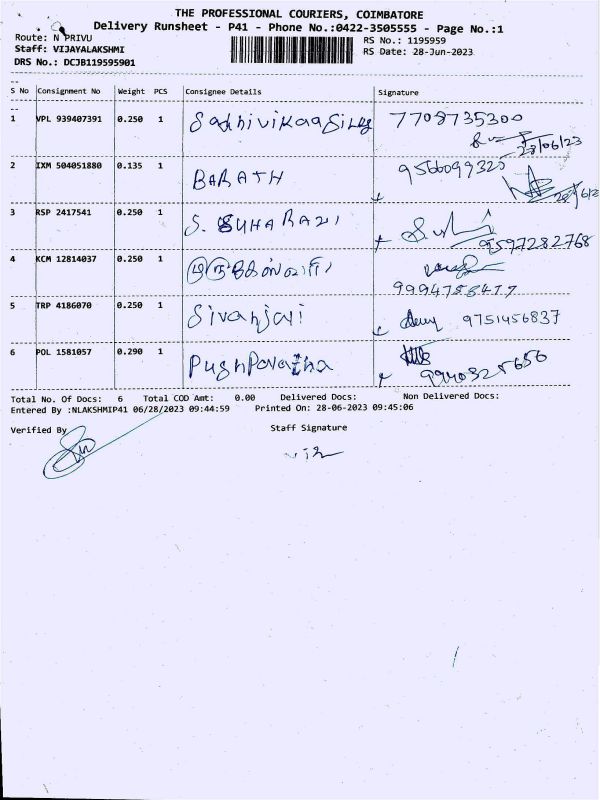 THE PROFESSIONAL COURIERS, COIMBATORE
Delivery Runsheet - P41 - Phone No.:0422-3505555 - Page No.:1
Route: N PRIVU
RS No.: 1195959
Staff: VIJAYALAKSHMI
RS Date: 28-Jun-2023
DRS No.: DCJB119595901
S No Consignment No Weight PCS Consignee Details Signature
1 VPL 939407391 0.250 1 7708735300
28/06/23
2 IXM 504051880 0.135 1 BARATH 9566099325
3 RSP 2417541 0.250 1 S. SUHARAZI
9597282768
4 KCM 12814037 0.250 1
9994788477
5 TRP 4186070 0.250 1 Sivanjali 9751456837
6 POL 1581057 0.290 1
Total No. Of Docs: 6 Total COD Amt: 0.00 Delivered Docs: Non Delivered Docs:
Entered By :NLAKSHMIP41 06/28/2023 09:44:59 Printed On: 28-06-2023 09:45:06
Verified By
Staff Signature